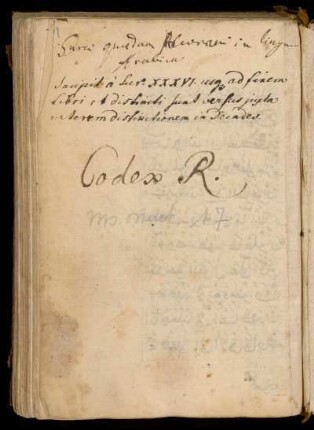 quædam Alcorani in lingua
Arabica
Incipit à Sur. XXXVI. usq. ad finem
libri et distincti sunt versus juxta
veterem distinctionem in Decades.
Codex R.
Ms